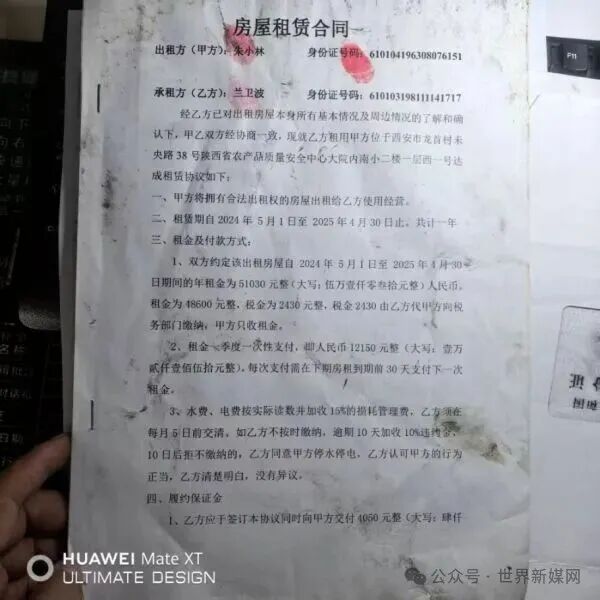 房屋租赁合同
出租方（甲方）：朱小林 身份证号码：610104196308076151
承租方（乙方）：兰卫波 身份证号码：610103198111141717
经乙方已对出租房屋本身所有基本情况及周边情况的了解和确
认下，甲乙双方经协商一致，现就乙方租用甲方位于西安市龙首村未
央路38号陕西省农产品质量安全中心大院内南小二楼一层西一号达
成租赁协议如下：
一、甲方将拥有合法出租权的房屋出租给乙方使用经营。
二、租赁期自2024年5月1日至2025年4月30日止，共计一年
三、租金及付款方式：
1、双方约定该出租房屋自2024年5月1日至2025年4月30
日期间的年租金为51030元整（大写：伍万壹仟零叁拾元整）人民币，
租金为48600元整，税金为2430元整，税金2430由乙方代甲方向税
务部门缴纳，甲方只收租金。
2、租金一季度一次性支付，即人民币12150元整（大写：壹万
贰仟壹佰伍拾元整），每次支付需在下期房租到期前30天支付下一次
租金。
3、水费、电费按实际读数并加收15%的损耗管理费，乙方须在
每月5日前交清。如乙方不按时缴纳，逾期10天加收10%违约金，
10日后拒不缴纳的，乙方同意甲方停水停电，乙方认可甲方的行为
正当，乙方清楚明白，没有异议。
四、履约保证金
1、乙方应于签订本协议同时向甲方交付4050元整（大写：肆仟
F11
HUAWEI Mate XT
ULTIMATE DESIGN
公众号·世界新媒网